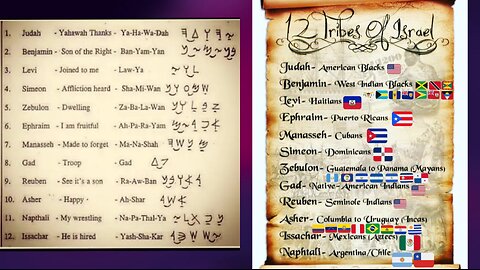 1. Judah - Yahawah Thanks - Ya-Ha-Wa-Dah
2. Benjamin - Son of the Right - Ban-Yam-Yan
3. Levi - Joined to me - Law-Ya
4. Simeon - Affliction heard - Sha-Mi-Wan
5. Zebulon - Dwelling - Za-Ba-La-Wan
6. Ephraim - I am fruitful - Ah-Pa-Ra-Yam
7. Manaseh - Made to forget - Ma-Na-Shah
8. Gad - Troop - Gad
9. Reuben - See it's a son - Ra-Aw-Ban
10. Asher - Happy - Ah-Shar
11. Napthali - My wrestling - Na-Pa-Thal-Ya
12. Issachar - He is hired - Yash-Sha-Kar
12 Tribes Of Israel
Judah - American Blacks
Benjamin - West Indian Blacks
Levi - Haitians
Ephraim - Puerto Ricans
Manasseh - Cubans
Simeon - Dominicans
Zebulon - Guatemala to Panama (Mayans)
Gad - Native-American Indians
Reuben - Seminole Indians
Asher - Columbia to Uruguay (Incas)
Issachar - Mexicans (Aztecs)
Naphtali - Argentina/Chile